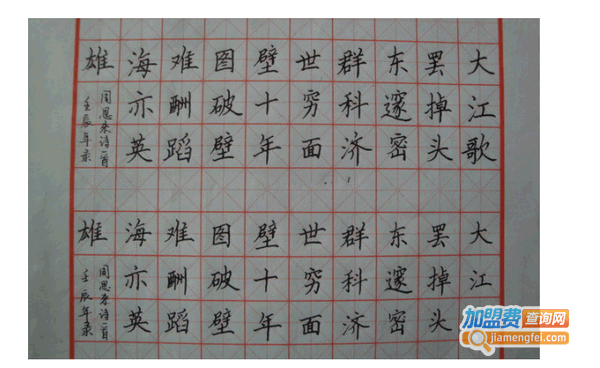 大江歌
罢掉头
东邃密
群科济
世穷面
壁十年
图破壁
难酬蹈
海亦英
雄
周恩来诗一首
壬辰年录
大江
罢掉头
东邃密
群科济
世穷面
壁十年
图破壁
难酬蹈
海亦英
雄
周恩来诗一首
壬辰年录
加盟费查询网
jiamengfei.com